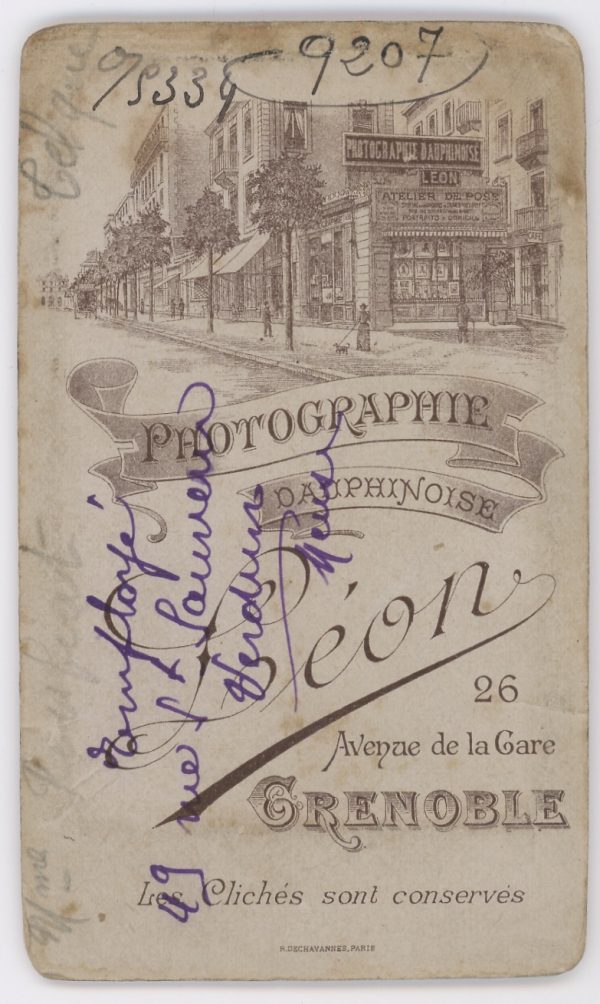 9207
PHOTOGRAPHIE DAUPHINOISE
LÉON
ATELIER DE POSE
PHOTOGRAPHIE
DAUPHINOISE
Léon
26
Avenue de la Gare
GRENOBLE
Les Clichés sont conservés
R. DECHAVANNES, PARIS
Employé
49 rue St Sauveur
Verdun
Meuse
Mme